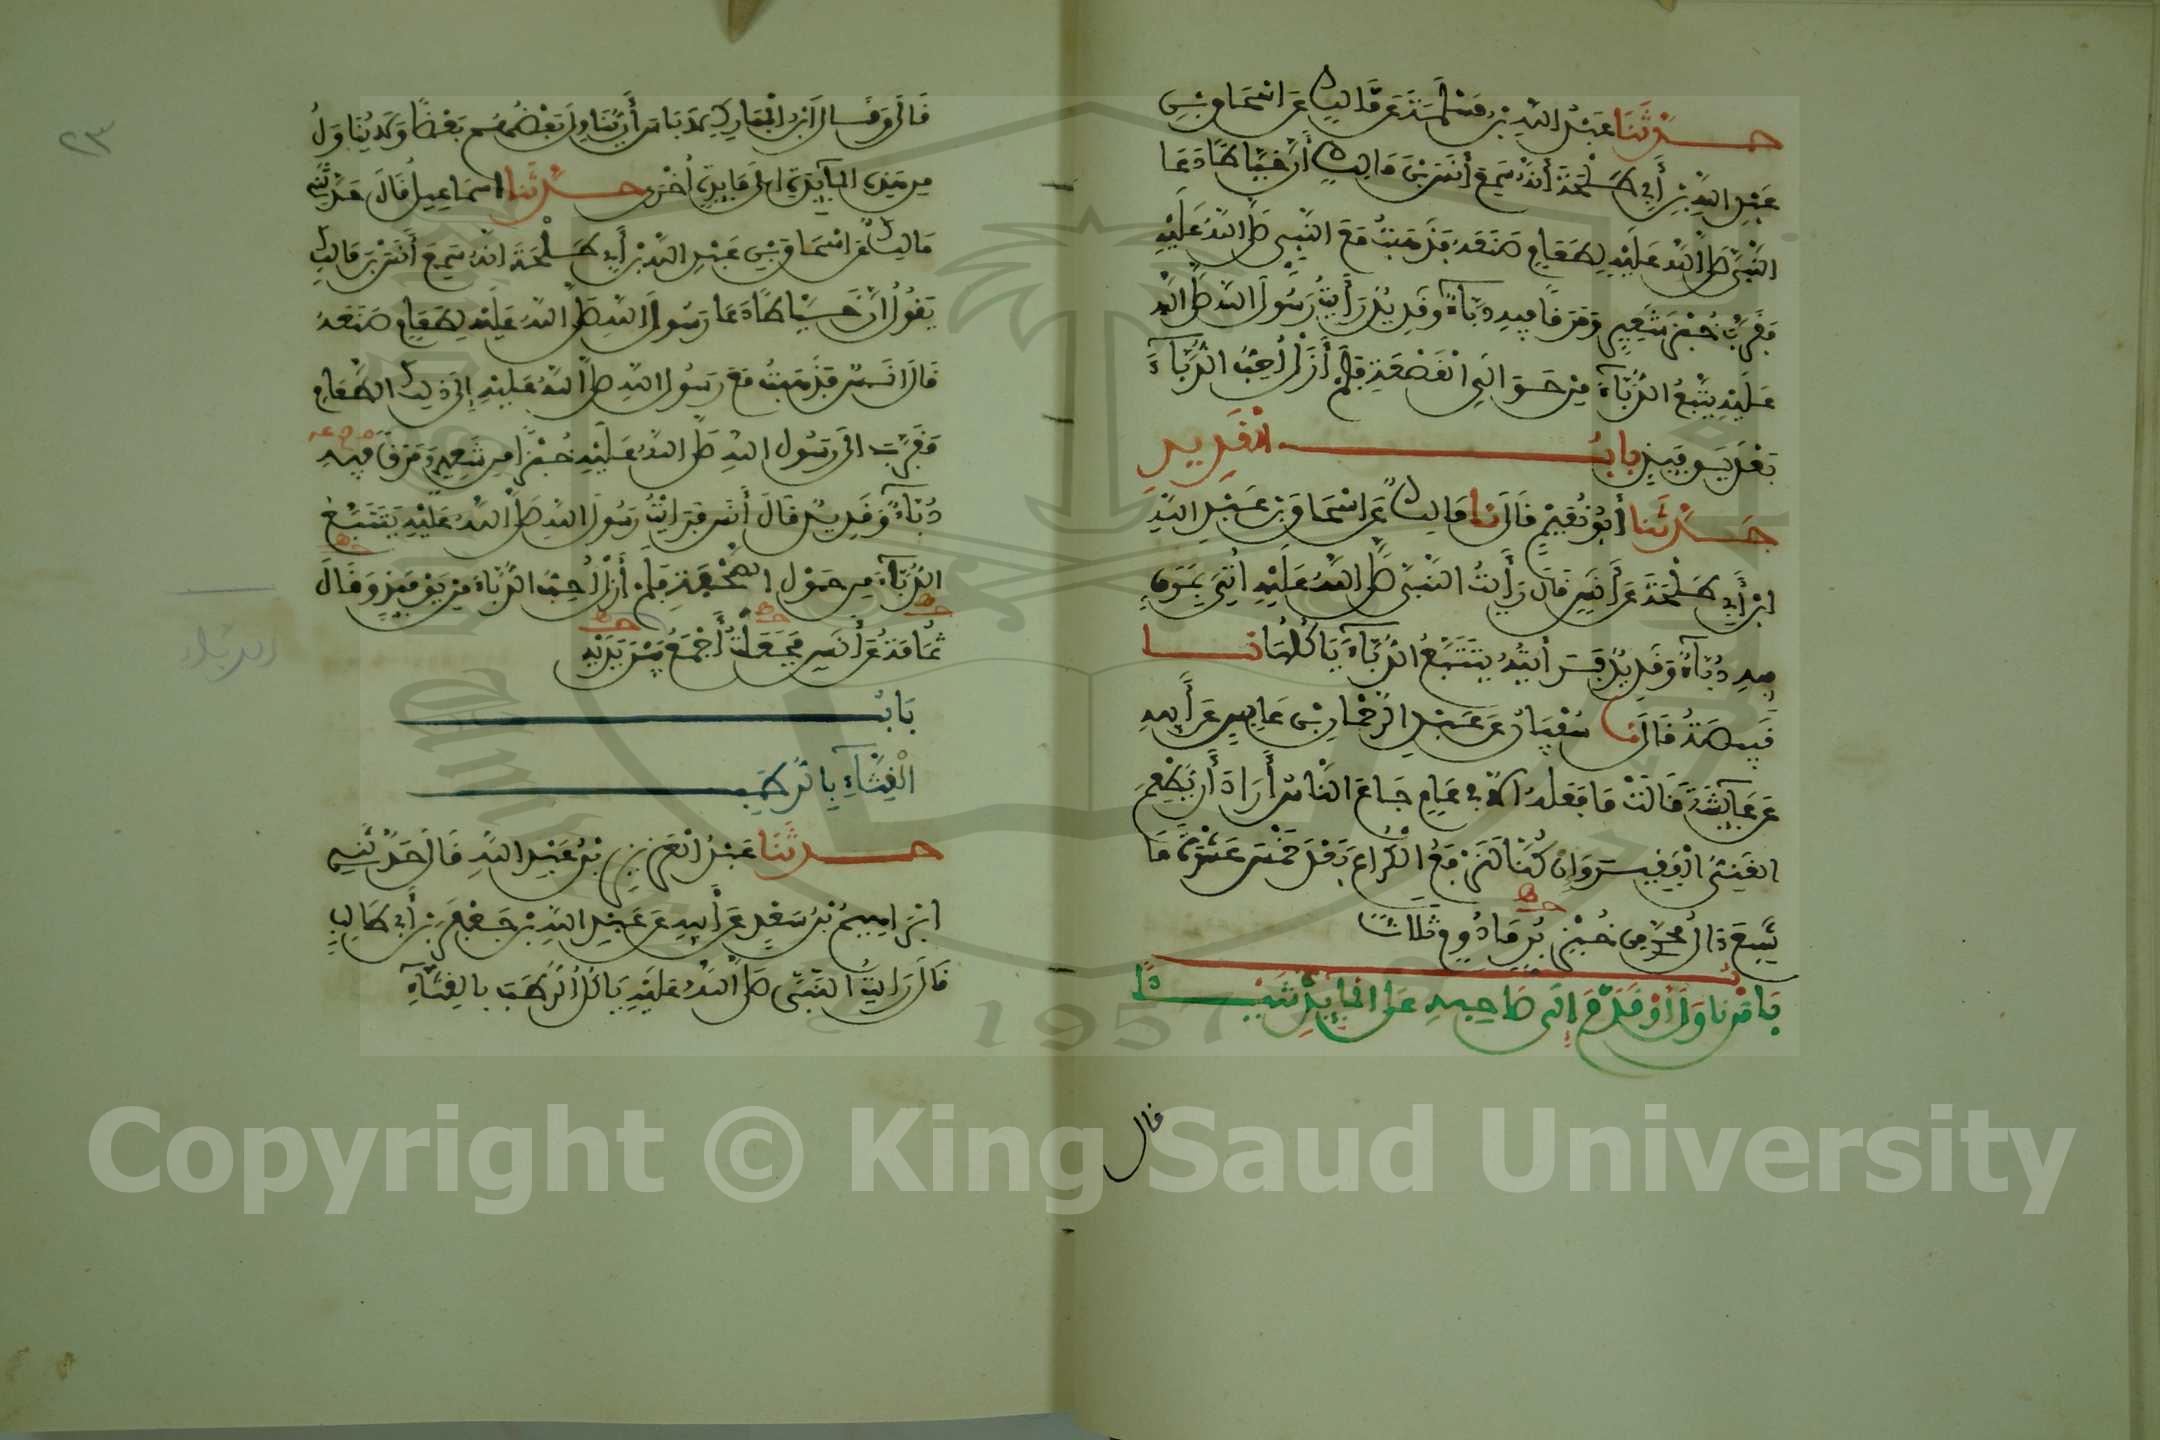 حدثنا عبد الله بن مسلمة عن مالك عن اسحاق بن
عبد الله بن أبي طلحة أنه سمع أنس بن مالك أن خياطا دعا
النبي صلى الله عليه لطعام صنعه فذهبت مع النبي صلى الله عليه
فقرب خبز شعير ومرقا فيه دباء وقديد رأيت رسول الله صلى الله
عليه يتبع الدباء من حوالي القصعة فلم أزل أحب الدباء
بعد يوميذ باب القديد
حدثنا أبو نعيم قال نا مالك عن اسحاق بن عبد الله
ابن أبي طلحة عن أنس قال رأيت النبي صلى الله عليه أتي بمرق
فيه دباء وقديد فرأيته يتتبع الدباء ياكلها نا
قبيصة قال نا سفيان عن عبد الرحمان بن عابس عن أبيه
عن عايشة قالت ما فعله الا في عام جاع الناس أراد أن يطعم
الغني الفقير وان كنا لنرفع الكراع بعد خمس عشرة ما
شبع ءال محمد من خبز بر مادوم ثلاثا
باب من ناول أو قدم إلى صاحبه على المايدة شيئا
قال
٢٣
قال وقال ابن المبارك لا باس أن يناول بعضهم بعضا ولا يناول
من هذه المايدة الى مايدة أخرى حدثنا اسماعيل قال حدثني
مالك عن اسحاق بن عبد الله بن أبي طلحة انه سمع أنس بن مالك
يقول ان خياطا دعا رسول الله صلى الله عليه لطعام صنعه
قال انس فذهبت مع رسول الله صلى الله عليه إلى ذلك الطعام
فقرب الى رسول الله صلى الله عليه خبزا من شعير ومرقا فيه
دباء وقديد قال أنس فرايت رسول الله صلى الله عليه يتتبع
الدباء من حول الصحفة فلم أزل أحب الدباء من يوميذ وقال
ثمامة عن أنس فجعلت أجمع بين يديه
باب
القثاء بالرطب
حدثنا عبد العزيز بن عبد الله قال حدثني
ابراهيم بن سعد عن أبيه عن عبد الله بن جعفر بن أبي طالب
قال رايت النبي صلى الله عليه ياكل الرطب بالقثاء
1957
Copyright © King Saud University